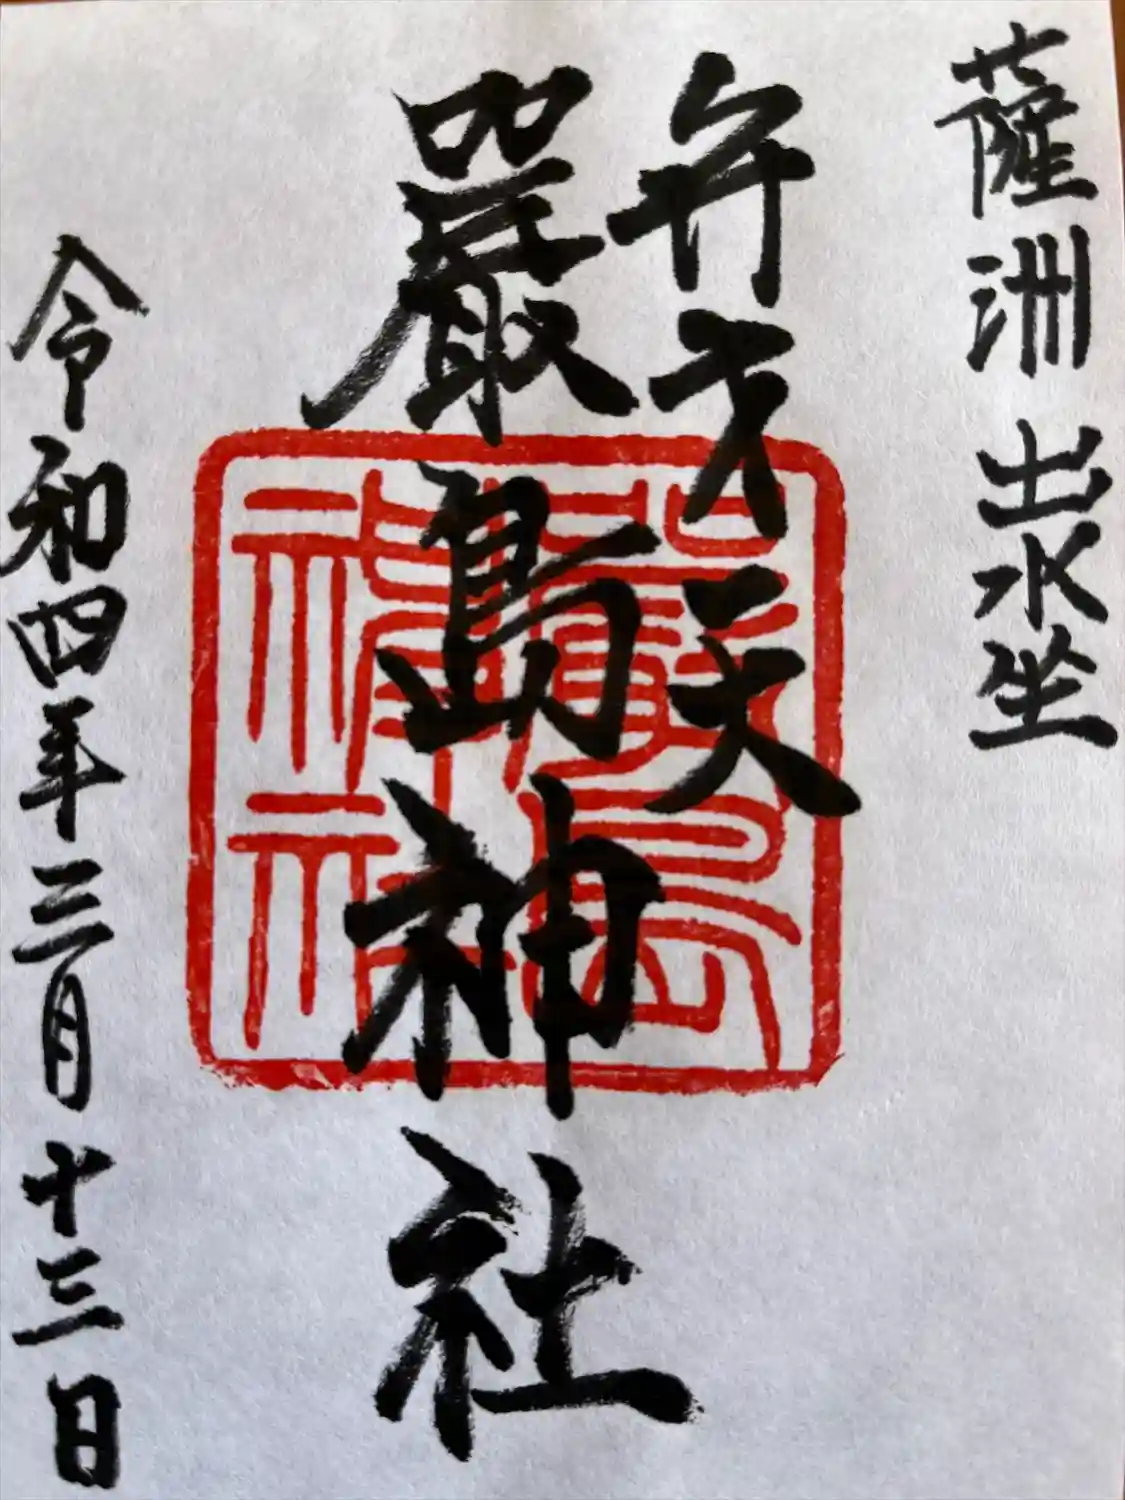 薩洲出水坐
弁才天
嚴島神社
令和四年三月十三日
嚴島
神社